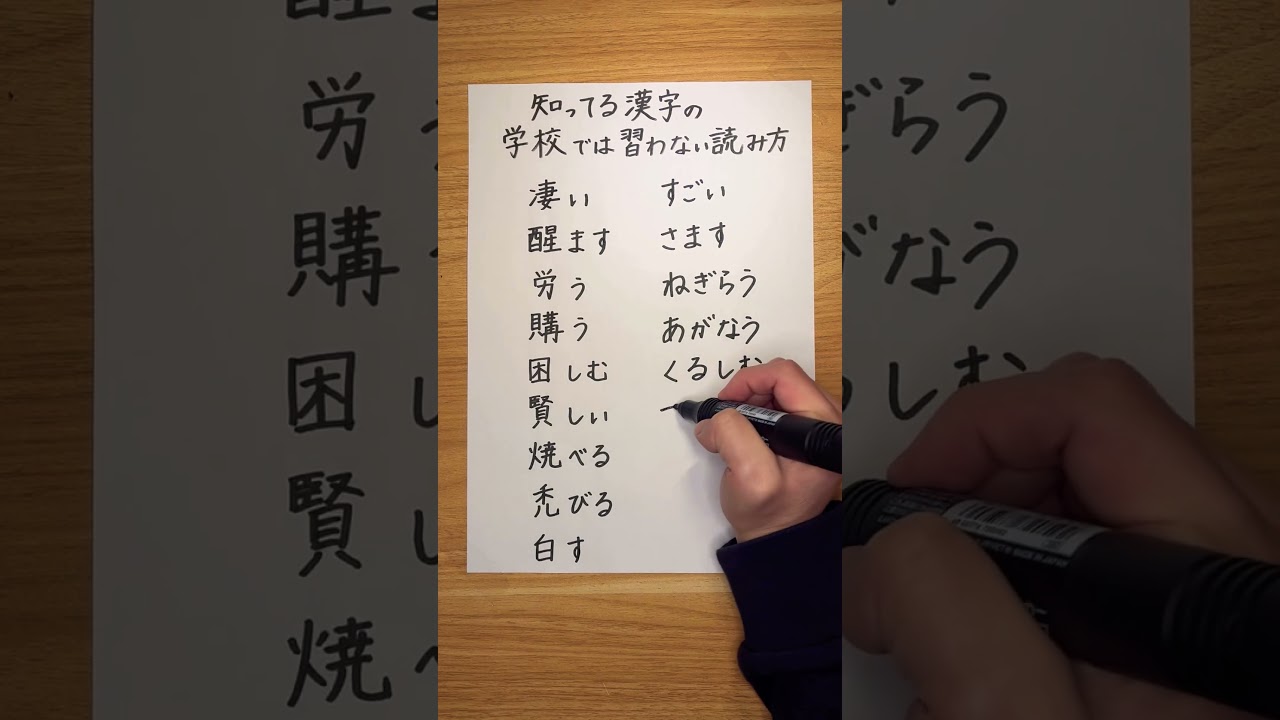 知ってる漢字の
学校では習わない読み方
凄い すごい
醒ます さます
労う ねぎらう
購う あがなう
困しむ くるしむ
賢しい
焼べる
禿びる
白す